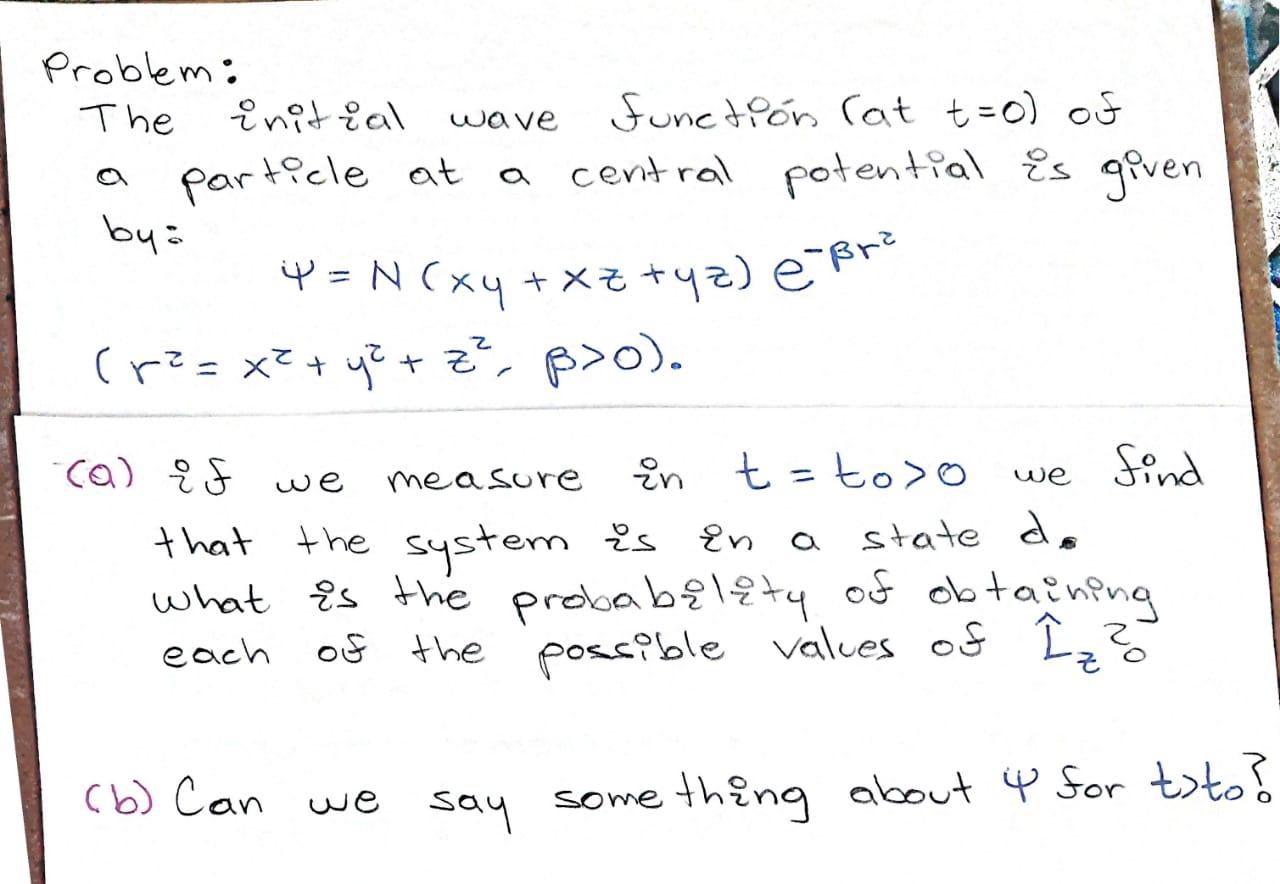 Problem:
The initial wave functión (at t=0) of
a particle at a central potential is given
by:
Ψ = N (xy + xz + yz) e^-βr²
(r² = x² + y² + z², β>0).
(a) if we measure in t = to>0 we find
that the system is in a state d.
what is the probability of obtaining
each of the possible values of L̂z?
(b) Can we say something about Ψ for t>to?